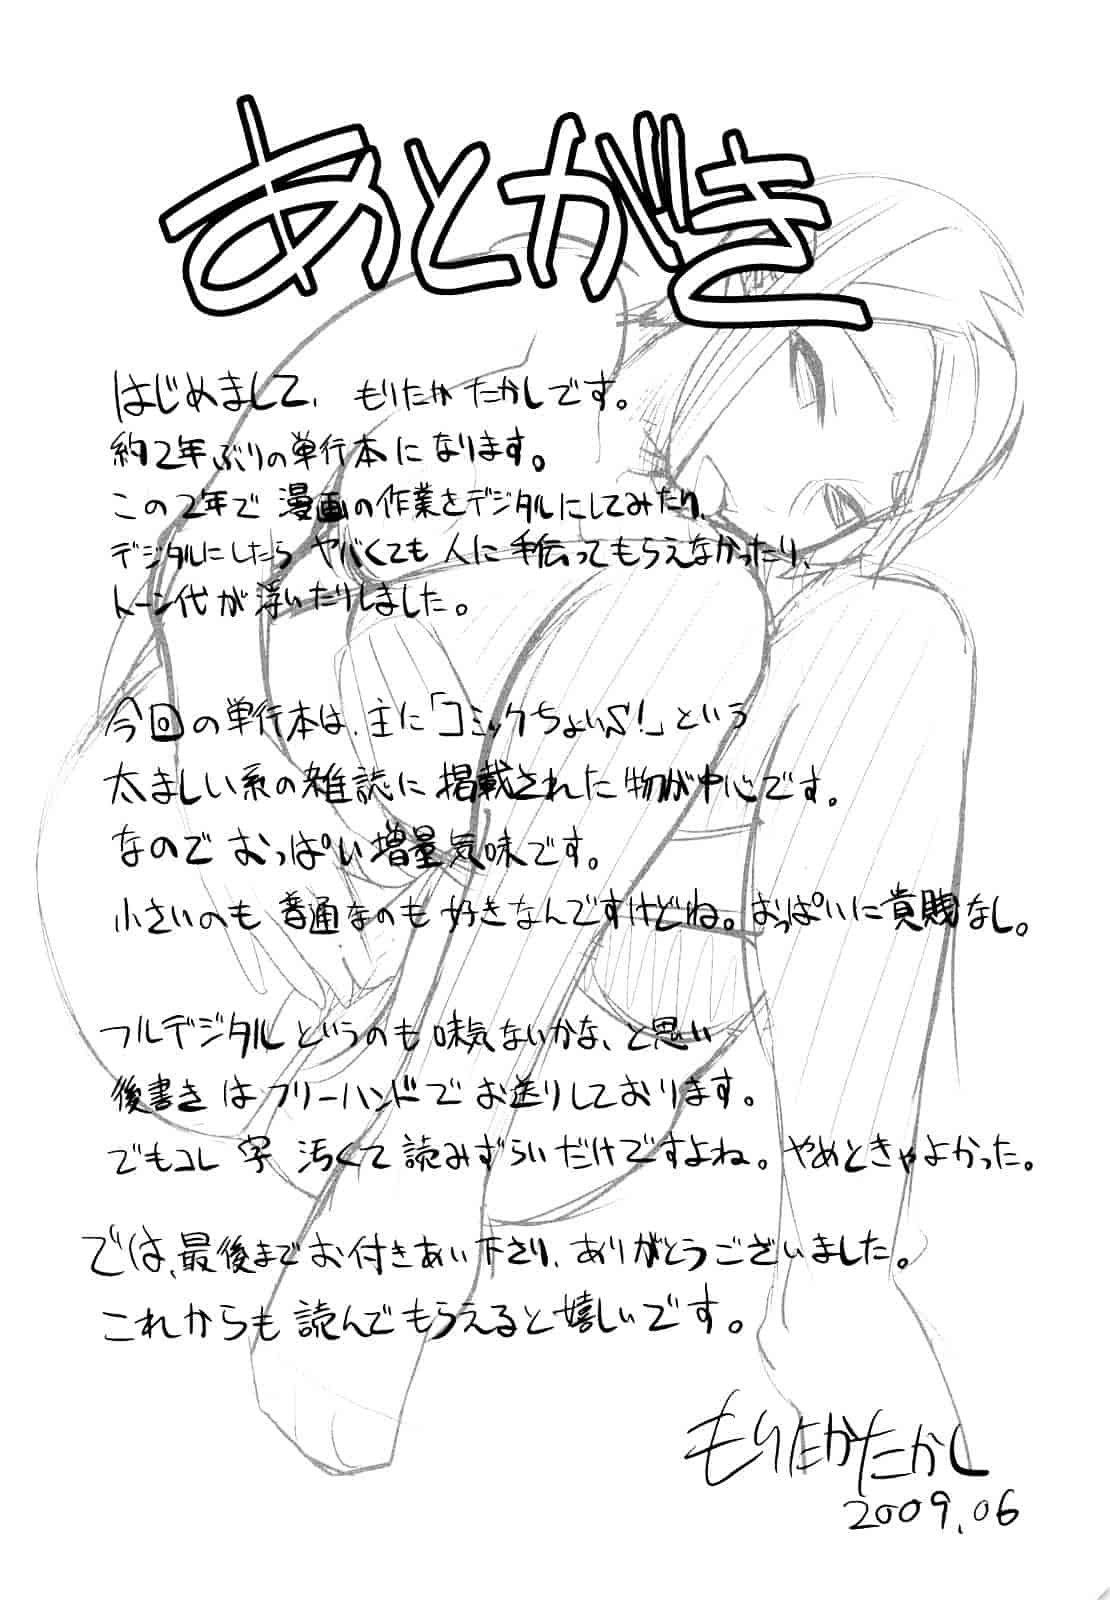 あとがき
はじめまして、もりたか たかしです。
約2年ぶりの単行本になります。
この2年で 漫画の作業をデジタルにしてみたり、
デジタルにしたら ヤバくても 人に 手伝ってもらえなかったり、
トーン代が浮いたりしました。
今回の単行本は、主に「コミックちょいS!」という
太ましい系の雑誌に掲載された物が中心です。
なので おっぱい増量気味です。
小さいのも 普通なのも 好きなんですけどね。おっぱいに貴賎なし。
フルデジタル どうのも 味気ないかな、と思い
後書きは フリーハンドで お送りしております。
でもコレ 字 汚くて 読みずらいだけですよね。やめときゃよかった。
では、最後までお付きあい下さり、ありがとうございました。
これからも 読んでもらえると嬉しいです。
もりたかたかし
2009.06